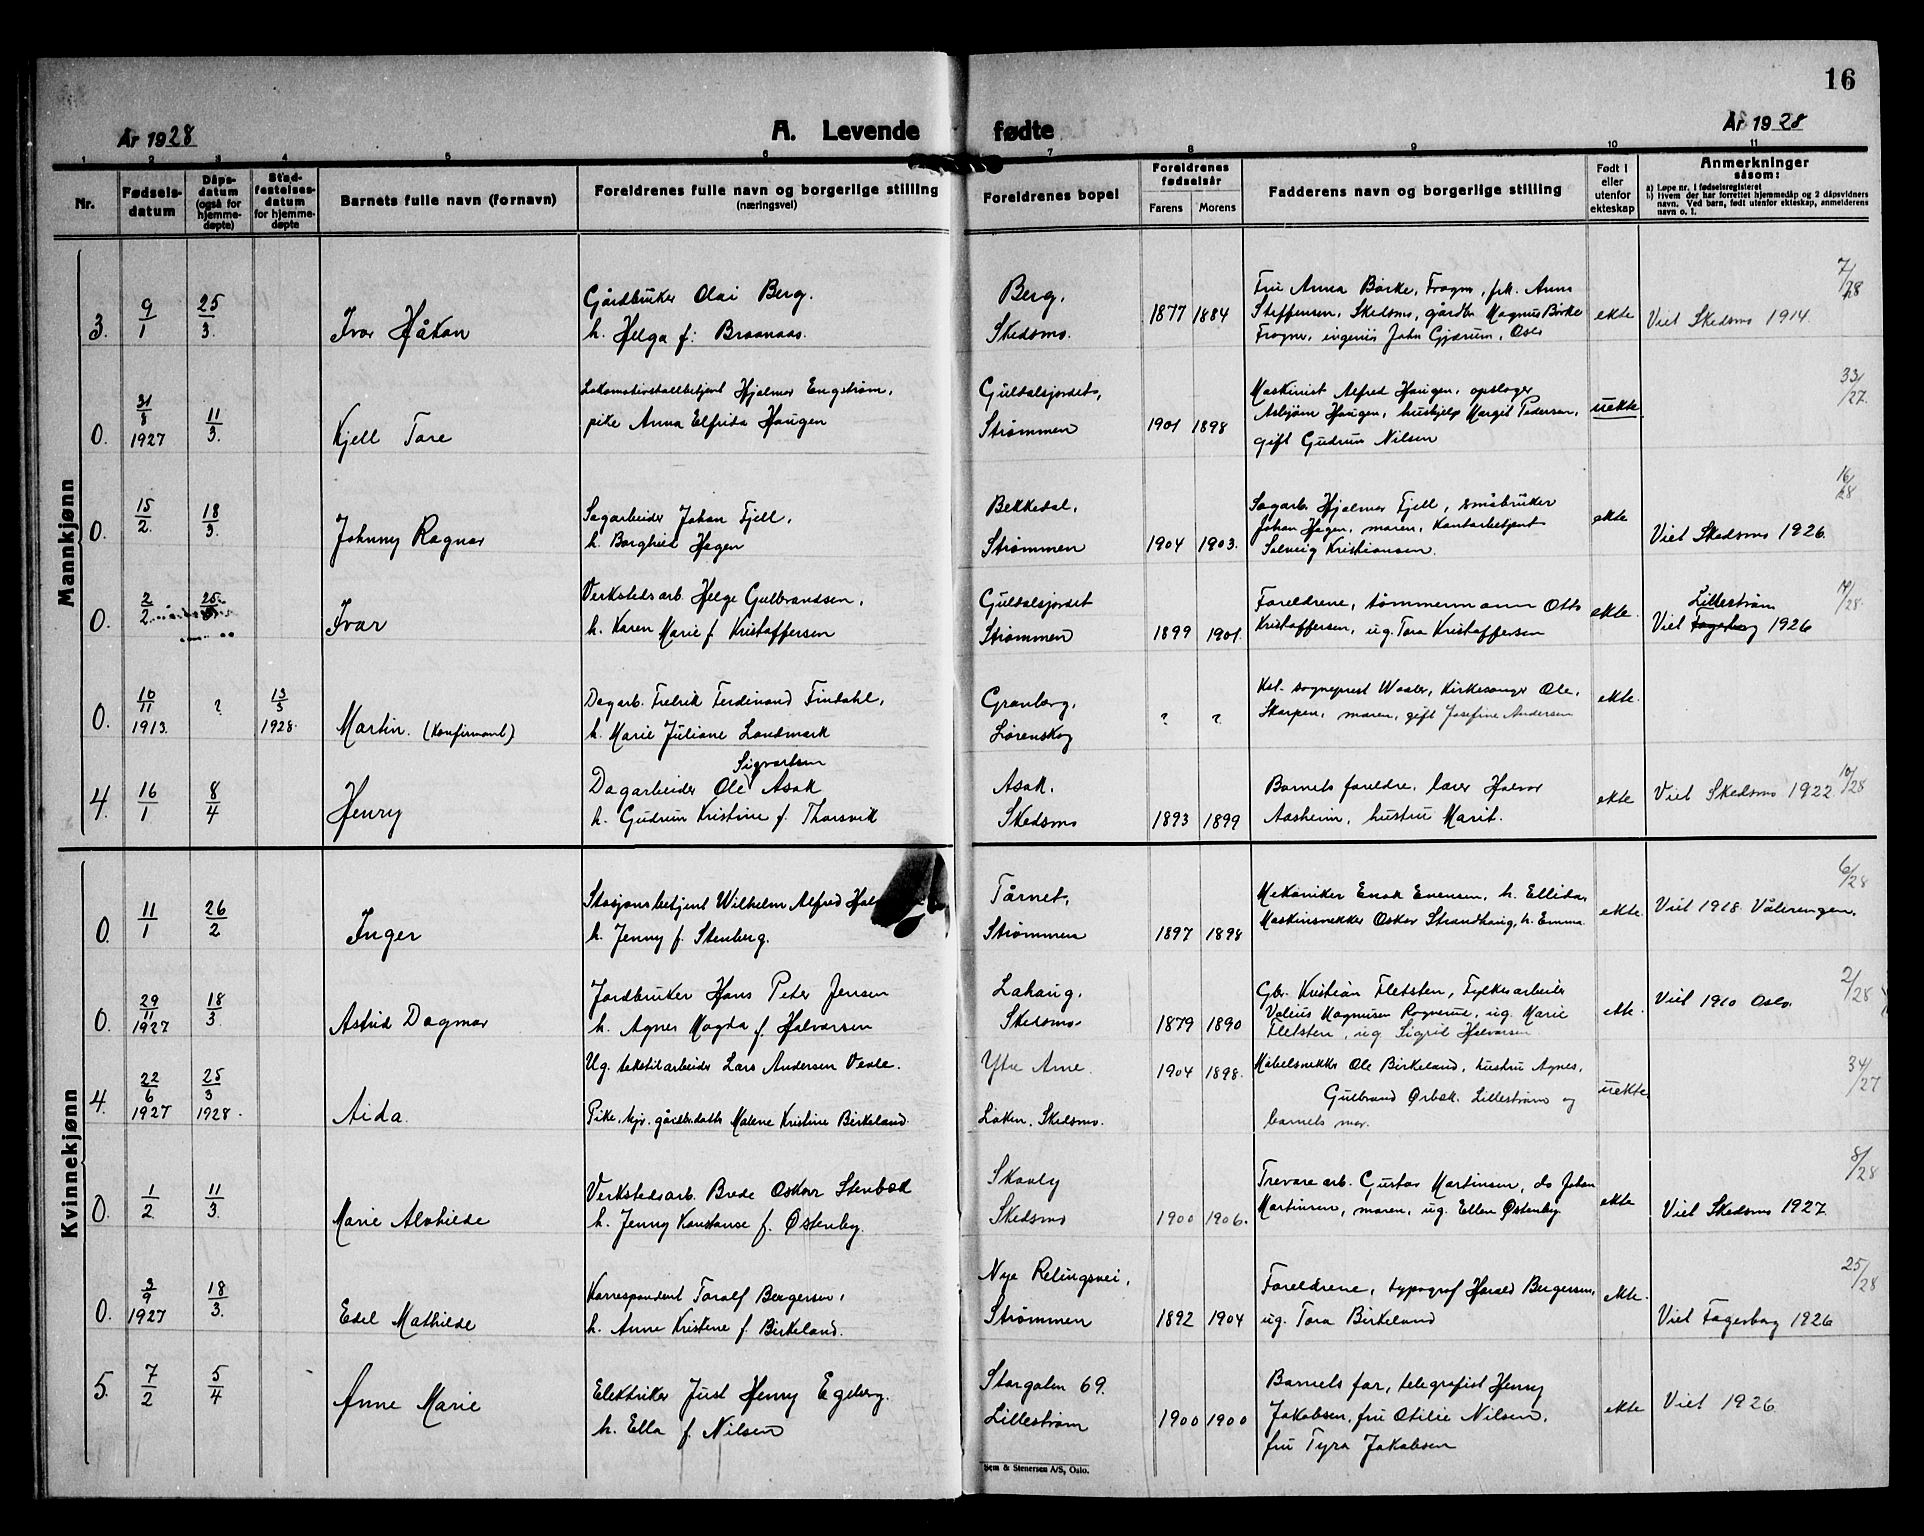 16
År 1928
A. Levende fødte
År 1928
1 2 3 4 5 6 7 8 9 10 11
Nr.
Fødselsdatum
Dåpsdatum (også for hjemmedøpte)
Stadfestelsesdatum for hjemmedøpte
Barnets fulle navn (fornavn)
Foreldrenes fulle navn og borgerlige stilling
(næringsvei)
Foreldrenes bopel
Foreldrenes fødselsår
Farens Morens
Fadderens navn og borgerlige stilling
Født i eller utenfor ekteskap
Anmerkninger såsom:
a) Løpe nr. i fødselsregisteret
b) Hvem der har forrettet hjemmedåp og 2 dåpsvidners navn. Ved barn, født utenfor ekteskap, anmelderens navn o. l.
Mannkjønn
3. 9/1 25/3. Ivar Håkon
Gårdbruker Olai Berg.
h. Helga f: Braanaas.
Berg,
Skedsmo.
1877 1884
Fru Anna Børke, Frogner, frk. Anna
Steffensen, Skedsmo, gårdbr. Magnus Børke
Frogner, ingeniør John Gjærum, Oslo
ekte
Viet Skedsmo 1914.
7/28
0. 31/8 1927 11/3. Kjell Tore
Lokomotivstallbetjent Hjalmar Engstrøm,
pike Anna Elfrida Haugen
Guldalsjordet,
Strømmen
1901 1898
Maskinist Alfred Haugen, opsloger
Asbjørn Haugen, hushjelp Margit Pedersen,
gift Gudrun Nilsen
uekte
33/27.
0. 15/2. 18/3. Johnny Ragnar
Sagarbeider Johan Fjell,
h. Borghild Hagen
Bekkedal,
Strømmen
1904 1903.
Sagarb. Hjalmar Fjell, småbruker
Johan Hagen, moren, Kontorbetjent
Solveig Kristiansen.
ekte
Viet Skedsmo 1926.
16/28
0. 2/2 25/3 Ivar
Verkstedsarb. Helge Gulbrandsen,
h. Karen Marie f. Kristoffersen
Guldalsjordet
Strømmen
1899 1901.
Foreldrene, tømmermann Otto
Kristoffersen, ug. Tora Kristoffersen
ekte.
Lillestrøm
Viet Fagerborg 1926
17/28.
0. 10/11 1913. ? 13/3 1928. Martin. (Konfirmant)
Dagarb. Fredrik Ferdinand Findahl,
h. Marie Juliane Landmark
Granberg,
Lørenskog
? ?
Kst. sogneprest Waaler, Kirkesanger Ole
Skarpen, moren, gift Josefine Andersen
ekte.
4. 16/1 8/4 Henry
Sigvartsen
Dagarbeider Ole Asak
h. Gudrun Kristine f. Thorsvik
Asak.
Skedsmo
1893 1899
Barnets foreldre, lærer Halvor
Aasheim, hustru Marit.
ekte
Viet Skedsmo 1922.
10/28
Kvinnekjønn
0. 11/1 26/2 Inger
Stasjonsbetjent Wilhelm Alfred
h. Jenny f. Stenberg.
Tårnet,
Strømmen
1897 1898
Mekaniker Enok Evensen, h. Ellida,
Maskinsnekker Oskar Strandhaug, h. Emma
ekte.
Viet 1918 Vålerengen.
6/28
0. 29/11 1927 18/3. Astrid Dagmar
Jordbruker Hans Peter Jensen
h. Agnes Magda f. Halvorsen
Lahaug,
Skedsmo.
1879 1890
Gbr. Kristian Fletsten, Fylkesarbeider
Valeius Magnusen Rognerud, ug. Marie
Fletsten, ug Sigrid Halvorsen
ekte.
Viet 1910 Oslo.
2/28
4. 22/6 1927 25/3 1928. Aida.
Ug. tekstilarbeider Lars Andersen Vevle.
Pike, hjv. gårdbr.datter Malene Kristine Birkeland.
Ytre Arne.
Løken, Skedsmo.
1904 1898.
Møbelsnekker Ole Birkeland, hustru Agnes,
Gulbrand Ørbæk, Lillestrøm og
barnets mor.
uekte
34/27
0. 1/2 11/3. Marie Alvhilde
Verkstedsarb. Brede Oskar Stenbæk
h. Jenny Konstanse f. Østenby.
Skovly
Skedsmo
1900 1906.
Trevare arb. Gustav Martinsen, do Johan
Martinsen, moren, ug. Ellen Østenby
ekte
Viet Skedsmo 1927.
8/28
0. 3/9 1927 18/3. Edel Mathilde
Korrespondent Toralf Bergersen,
h. Anne Kristene f. Birkeland.
Nye Relingsvei,
Strømmen
1892 1904
Foreldrene, typograf Harald Bergersen,
ug. Tora Birkeland
ekte.
Viet Fagerborg 1926
25/28
5. 7/2 5/4 Anne Marie
Elektriker Just Henry Egeberg.
h. Ella f. Nilsen
Storgaten 69.
Lillestrøm
1900 1900
Barnets far, telegrafist Henry
Jakobsen, fru Otilie Nilsen,
fru Tyra Jakobsen
ekte
Viet 1926.
Sem & Stenersen A/S, Oslo.